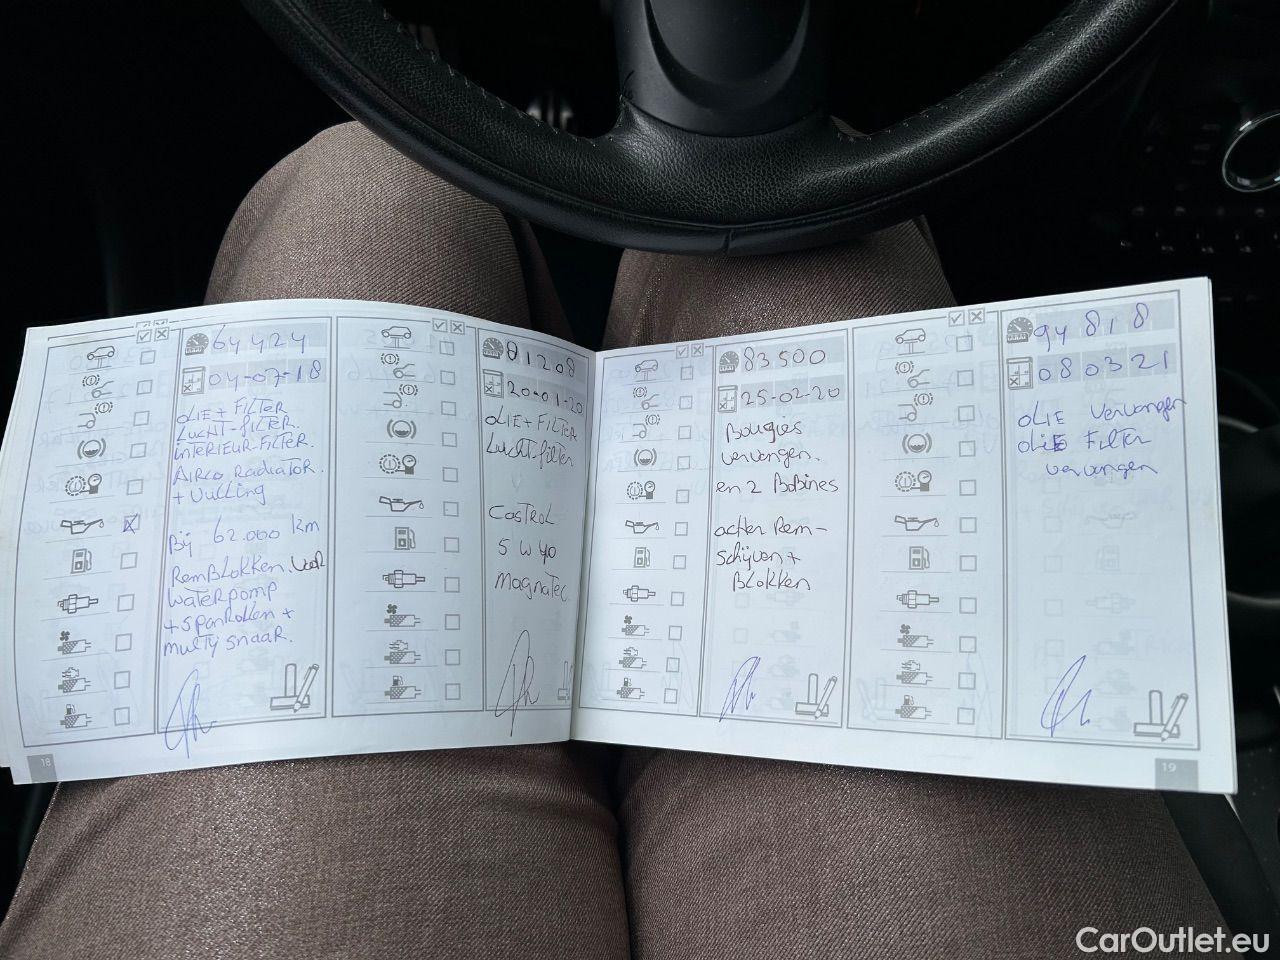 64424
04-07-18
OLIE + FILTER
LUCHT-FILTER.
INTERIEUR-FILTER.
AIRCO RADIATOR.
+ Vulling
Bij 62.000 km
RemBLOKKEN. VOOR
WATERPOMP
+ SPANROLLEN +
MULTY SNAAR.
18
81208
20-01-20
OLIE + FILTER
Lucht-filter
CASTROL
5 W 40
MAGNATEC.
83.500
25-02-20
Bougies
vervangen.
en 2 BoBines
achter Rem-
schijven +
BLOKKEN
94818
080321
OLIE Vervangen
OLIE FILTER
vervangen
19
CarOutlet.eu